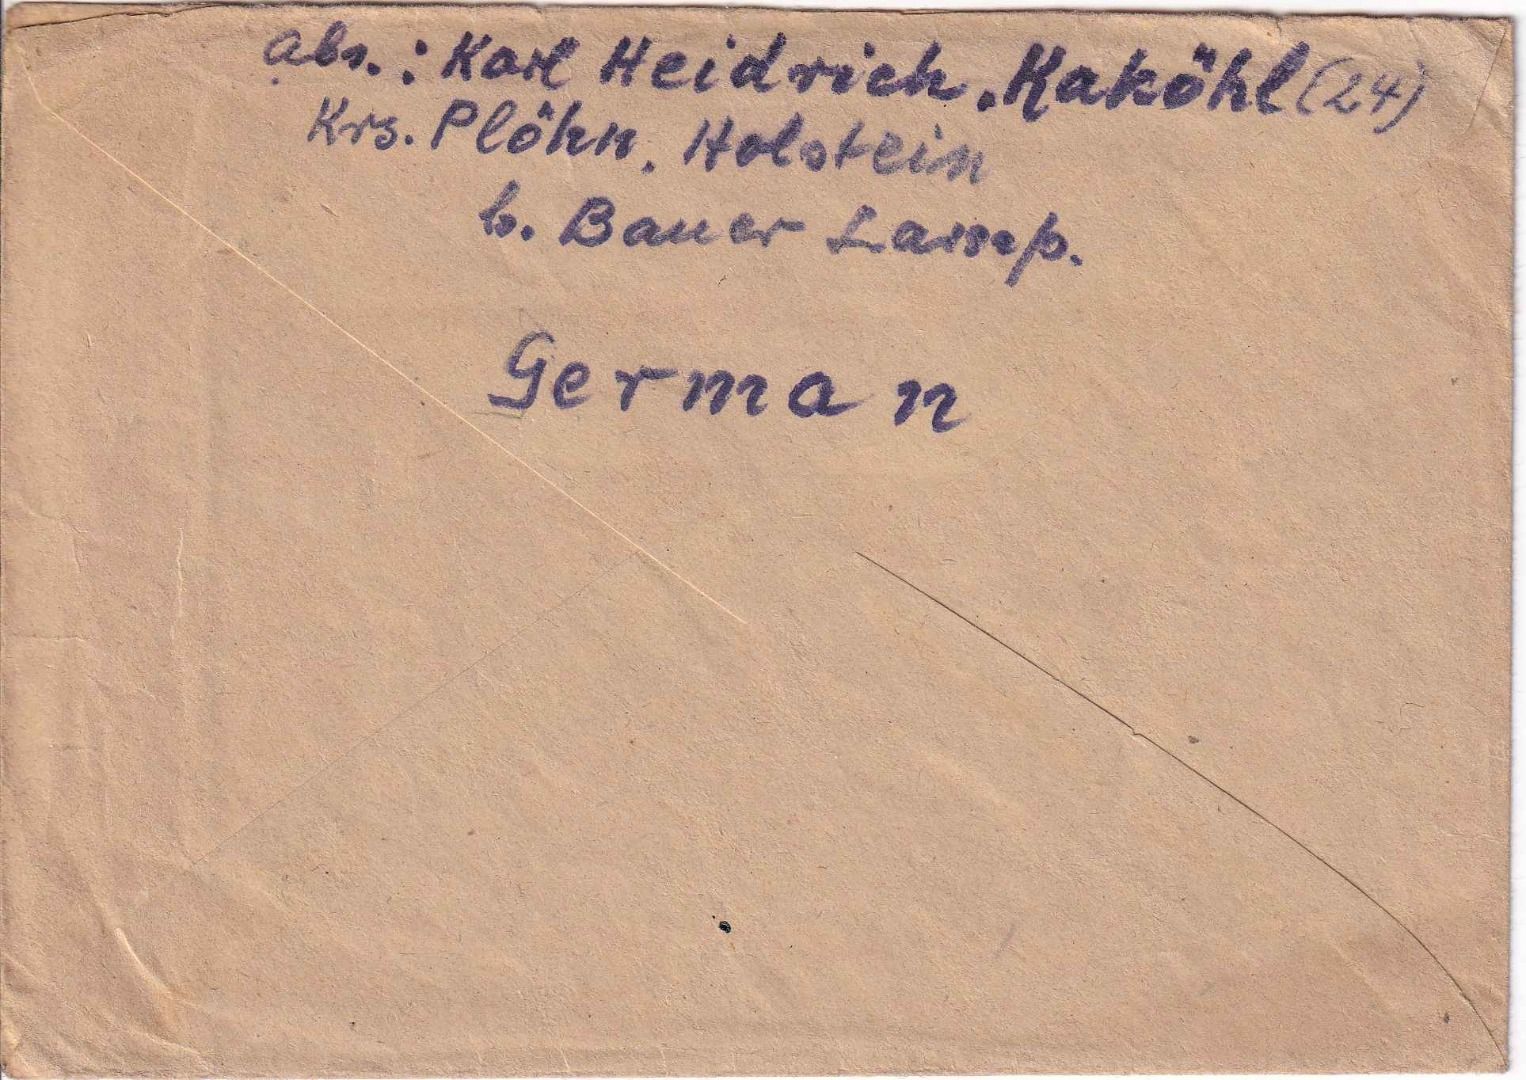 Abs.: Karl Heidrich, Kaköhl (24)
Krs. Plöhn, Holstein
b. Bauer
German